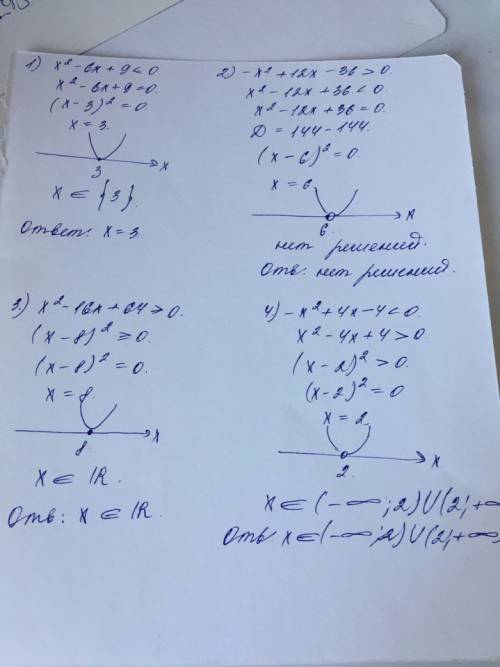 1) x² - 6x + 9 < 0
x² - 6x + 9 = 0.
(x - 3)² = 0.
x = 3.
3
x
x ∈ {3}.
Ответ: x = 3
2) - x² + 12x - 36 > 0.
x² - 12x + 36 < 0.
x² - 12x + 36 = 0.
D = 144 - 144.
(x - 6)² = 0.
x = 6
6
x
нет решений.
Отв: нет решений.
3) x² - 16x + 64 ≥ 0.
(x - 8)² ≥ 0.
(x - 8)² = 0.
x = 8.
8
x
x ∈ ℝ.
Отв: x ∈ ℝ.
4) - x² + 4x - 4 < 0.
x² - 4x + 4 > 0
(x - 2)² > 0.
(x - 2)² = 0
x = 2
2
x
x ∈ (-∞; 2) ∪ (2; +∞
Отв: x ∈ (-∞; 2) ∪ (2; +∞